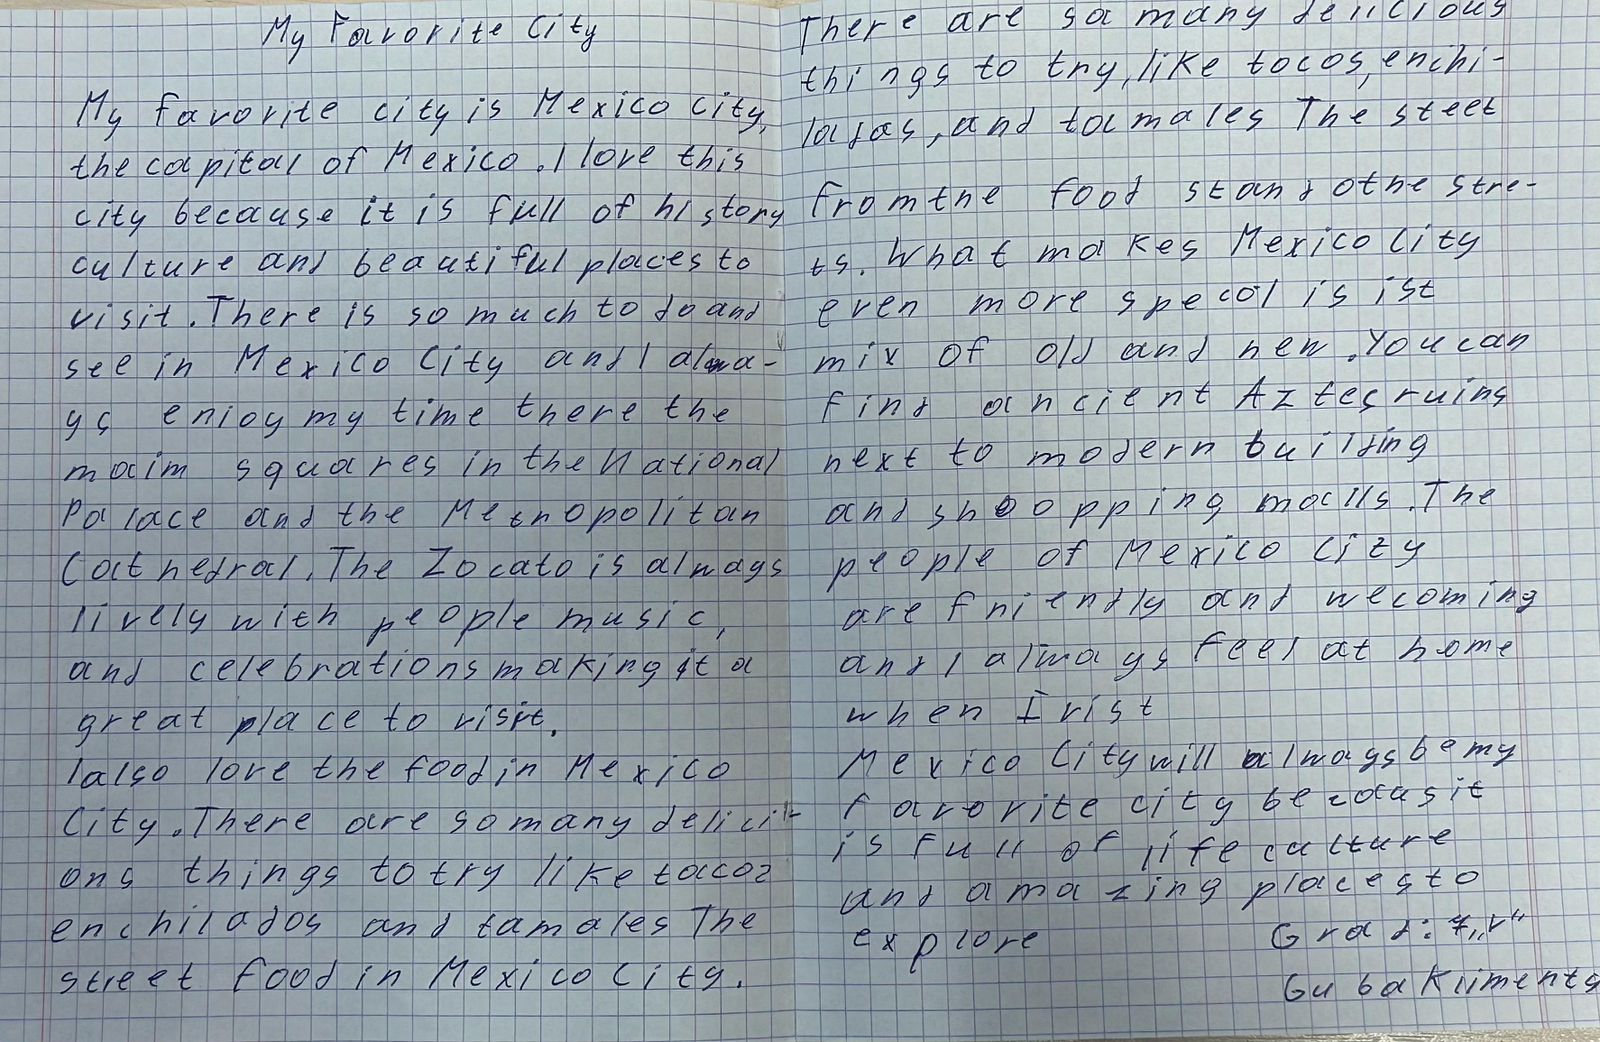 My Favorite City
My favorite city is Mexico City,
the capital of Mexico. I love this
city because it is full of history
culture and beautiful places to
visit. There is so much to do and
see in Mexico City and I alwa-
ys enjoy my time there the
maim squares in the National
Palace and the Metnopolitan
Cathedral. The Zocato is always
lively with people music,
and celebrations making it a
great place to visit.
I also love the food in Mexico
City. There are so many delici-
ons things to try like tacos
enchilados and tamales The
street food in Mexico City.
There are so many delicious
things to try, like tocos, enchi-
ladas, and tamales The steet
from the food stand othe stre-
ts. What makes Mexico City
even more specol is ist
mix of old and new. You can
find ancient Aztes ruins
next to modern builfing
and shoopping malls. The
people of Mexico City
are fniendly and wecoming
and I always feel at home
when I vist
Mexico City will always be my
favorite city becaus it
is full of life culture
and amazing places to
explore
Grad: 7„V“
Guba Klimenty